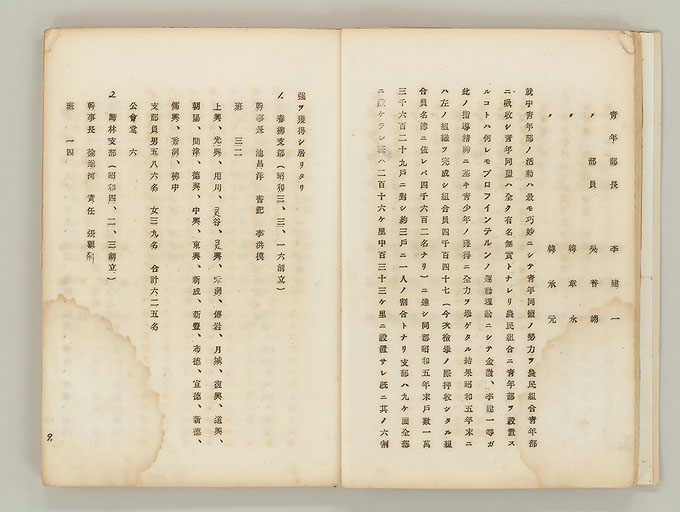 青年部長 李建一
〃 部員 吳普錫
〃 韓章永
〃 韓承元
就中青年部ノ活動ハ最モ巧妙ニシテ青年同盟ノ勢力ヲ農民組合青年部
ニ吸收シ青年同盟ハ全ク有名無實トナレリ農民組合ニ青年部ヲ設置ス
ルコトハ何レモプロフインテルンノ運動理論ニシテ金澈、李建一等ガ
此ノ指導精神ニ基キ青少年ノ獲得ニ全力ヲ擧ゲタル結果昭和五年末ニ
ハ左ノ組織ヲ完成シ組合員四千百四十七(今次檢擧ノ際押收シタル組
合員名簿ニ依レバ四千六百二名ナリ)ニ達シ同郡昭和五年末戶數一萬
三千六百二十九戶ニ對シ約三戶ニ一人ノ割合トナリ支部ハ九ケ面全部
ニ設ケラレ班ハ二百十六ケ里中百三十三ケ里ニ設置サレ既ニ其ノ六割
强ヲ獲得シ居リタリ
1. 春柳支部(昭和三、三、一六創立)
幹事長 池昌洋 書記 李洪模
班 三二
上興、光興、用川、灵谷、灵興、禾洞、傅岩、月城、復興、道興、
朝陽、間津、德興、中興、東興、新成、新豐、布德、宣德、新德、
儒興、香洞、柳中
支部員男五八六名 女三九名 合計六二五名
公會堂 六
2. 歸林支部(昭和四、二、三創立)
幹事長 徐 河 責任 張
班 一四
9.